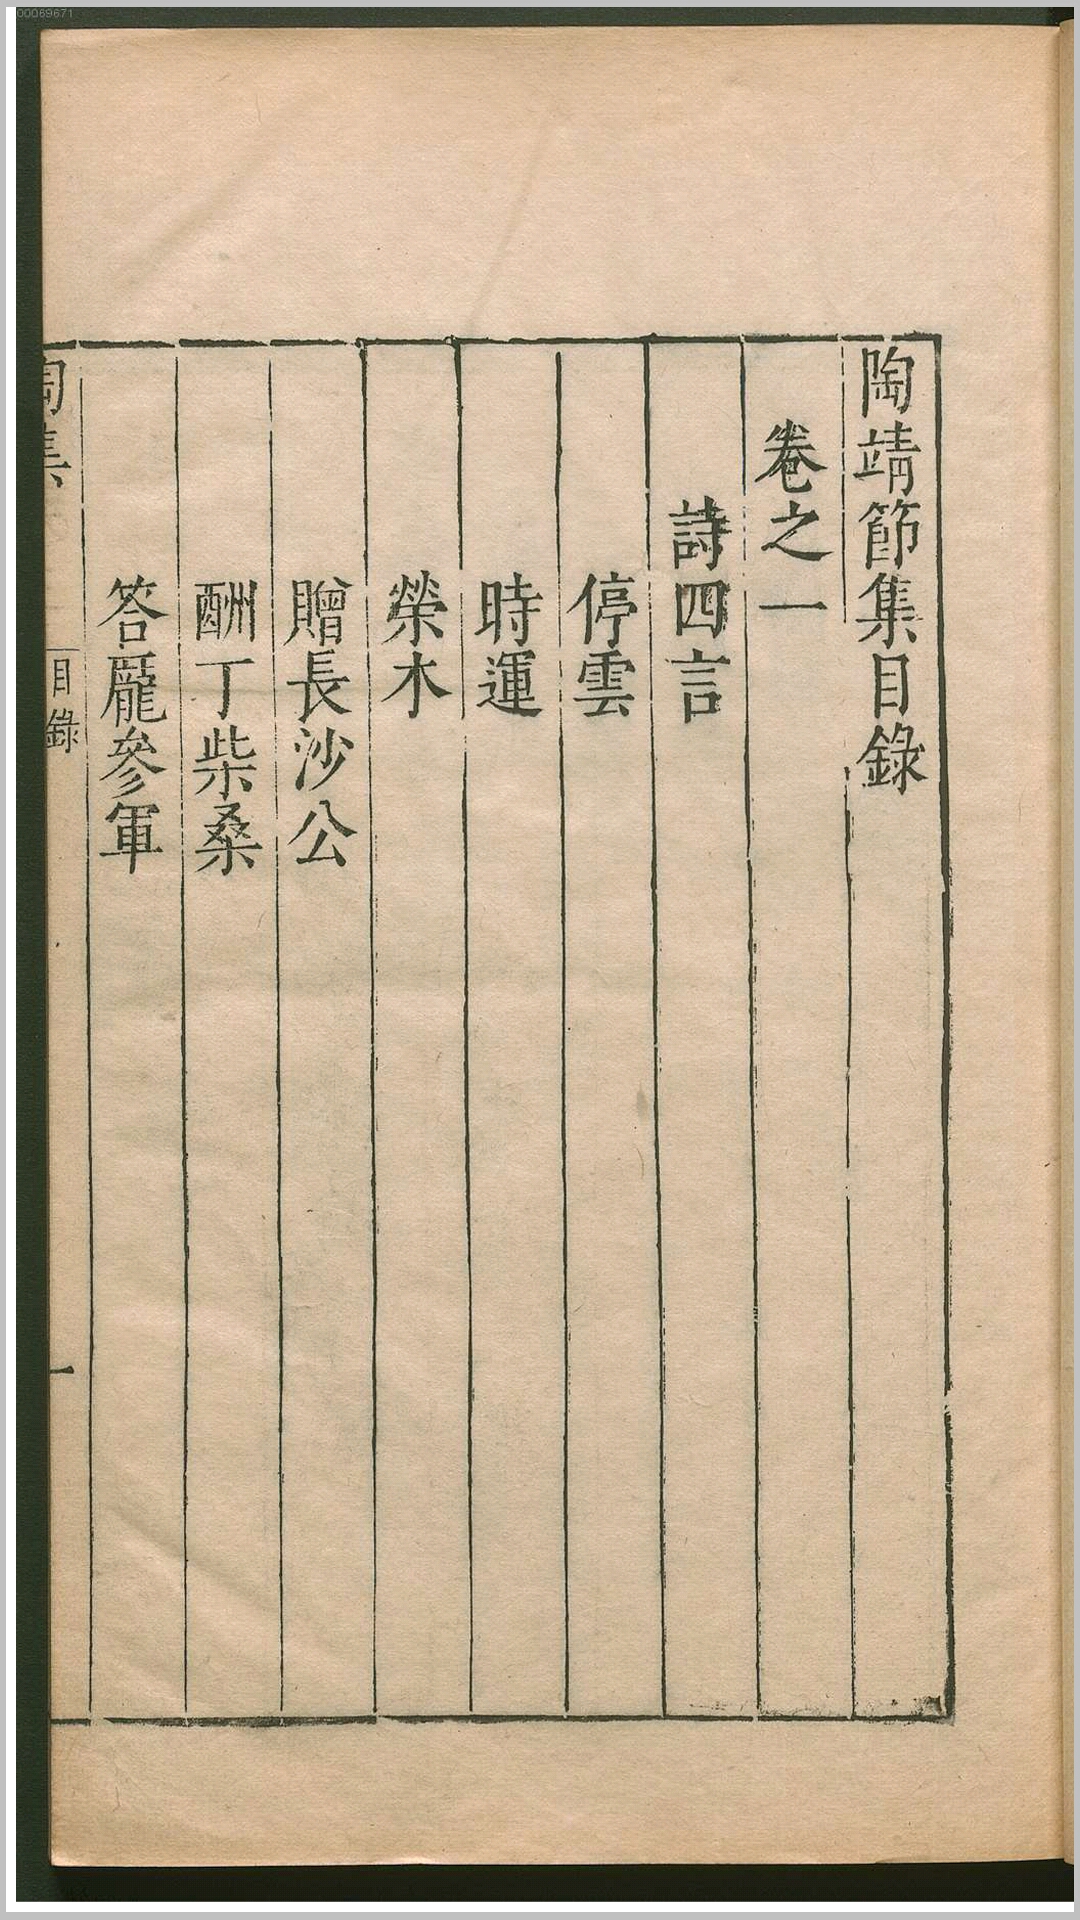 00069671
陶靖節集目錄
卷之一
詩四言
停雲
時運
榮木
贈長沙公
酬丁柴桑
答龐參軍
陶集
目錄
一